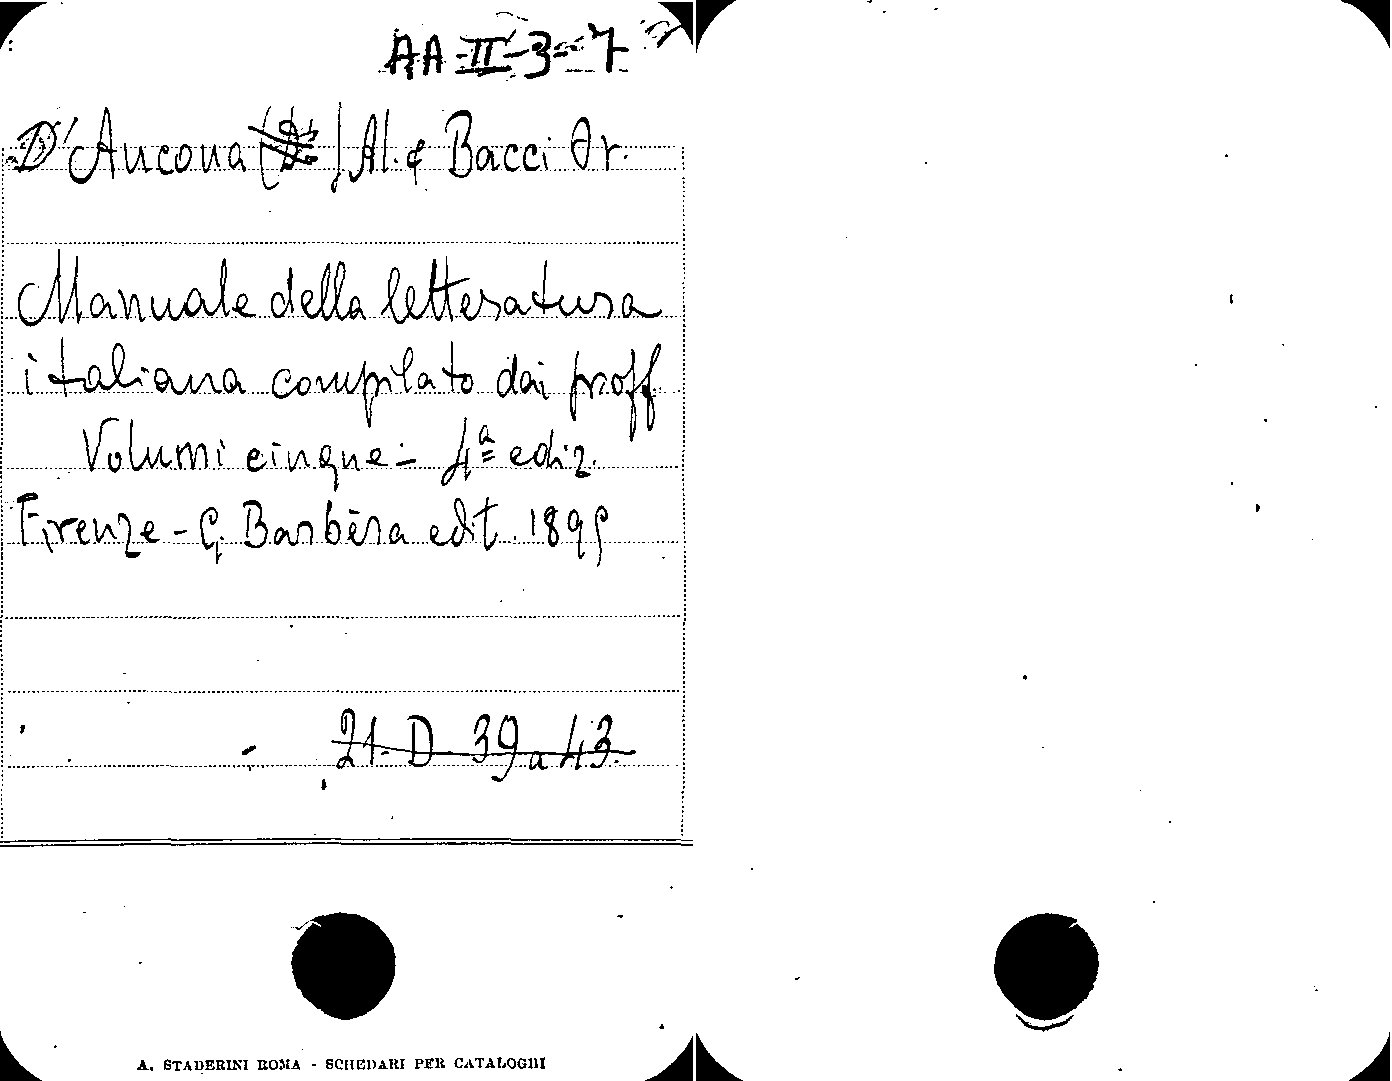 AA II-3-7
D'Ancona (D') Al. e Bacci Or.
Manuale della letteratura
italiana compilato dai proff
Volumi cinque - 4ª ediz.
Firenze - G. Barbèra edit. 1895
21. D 39 a 43.
A. STADERINI ROMA - SCHEDARI PER CATALOGHI